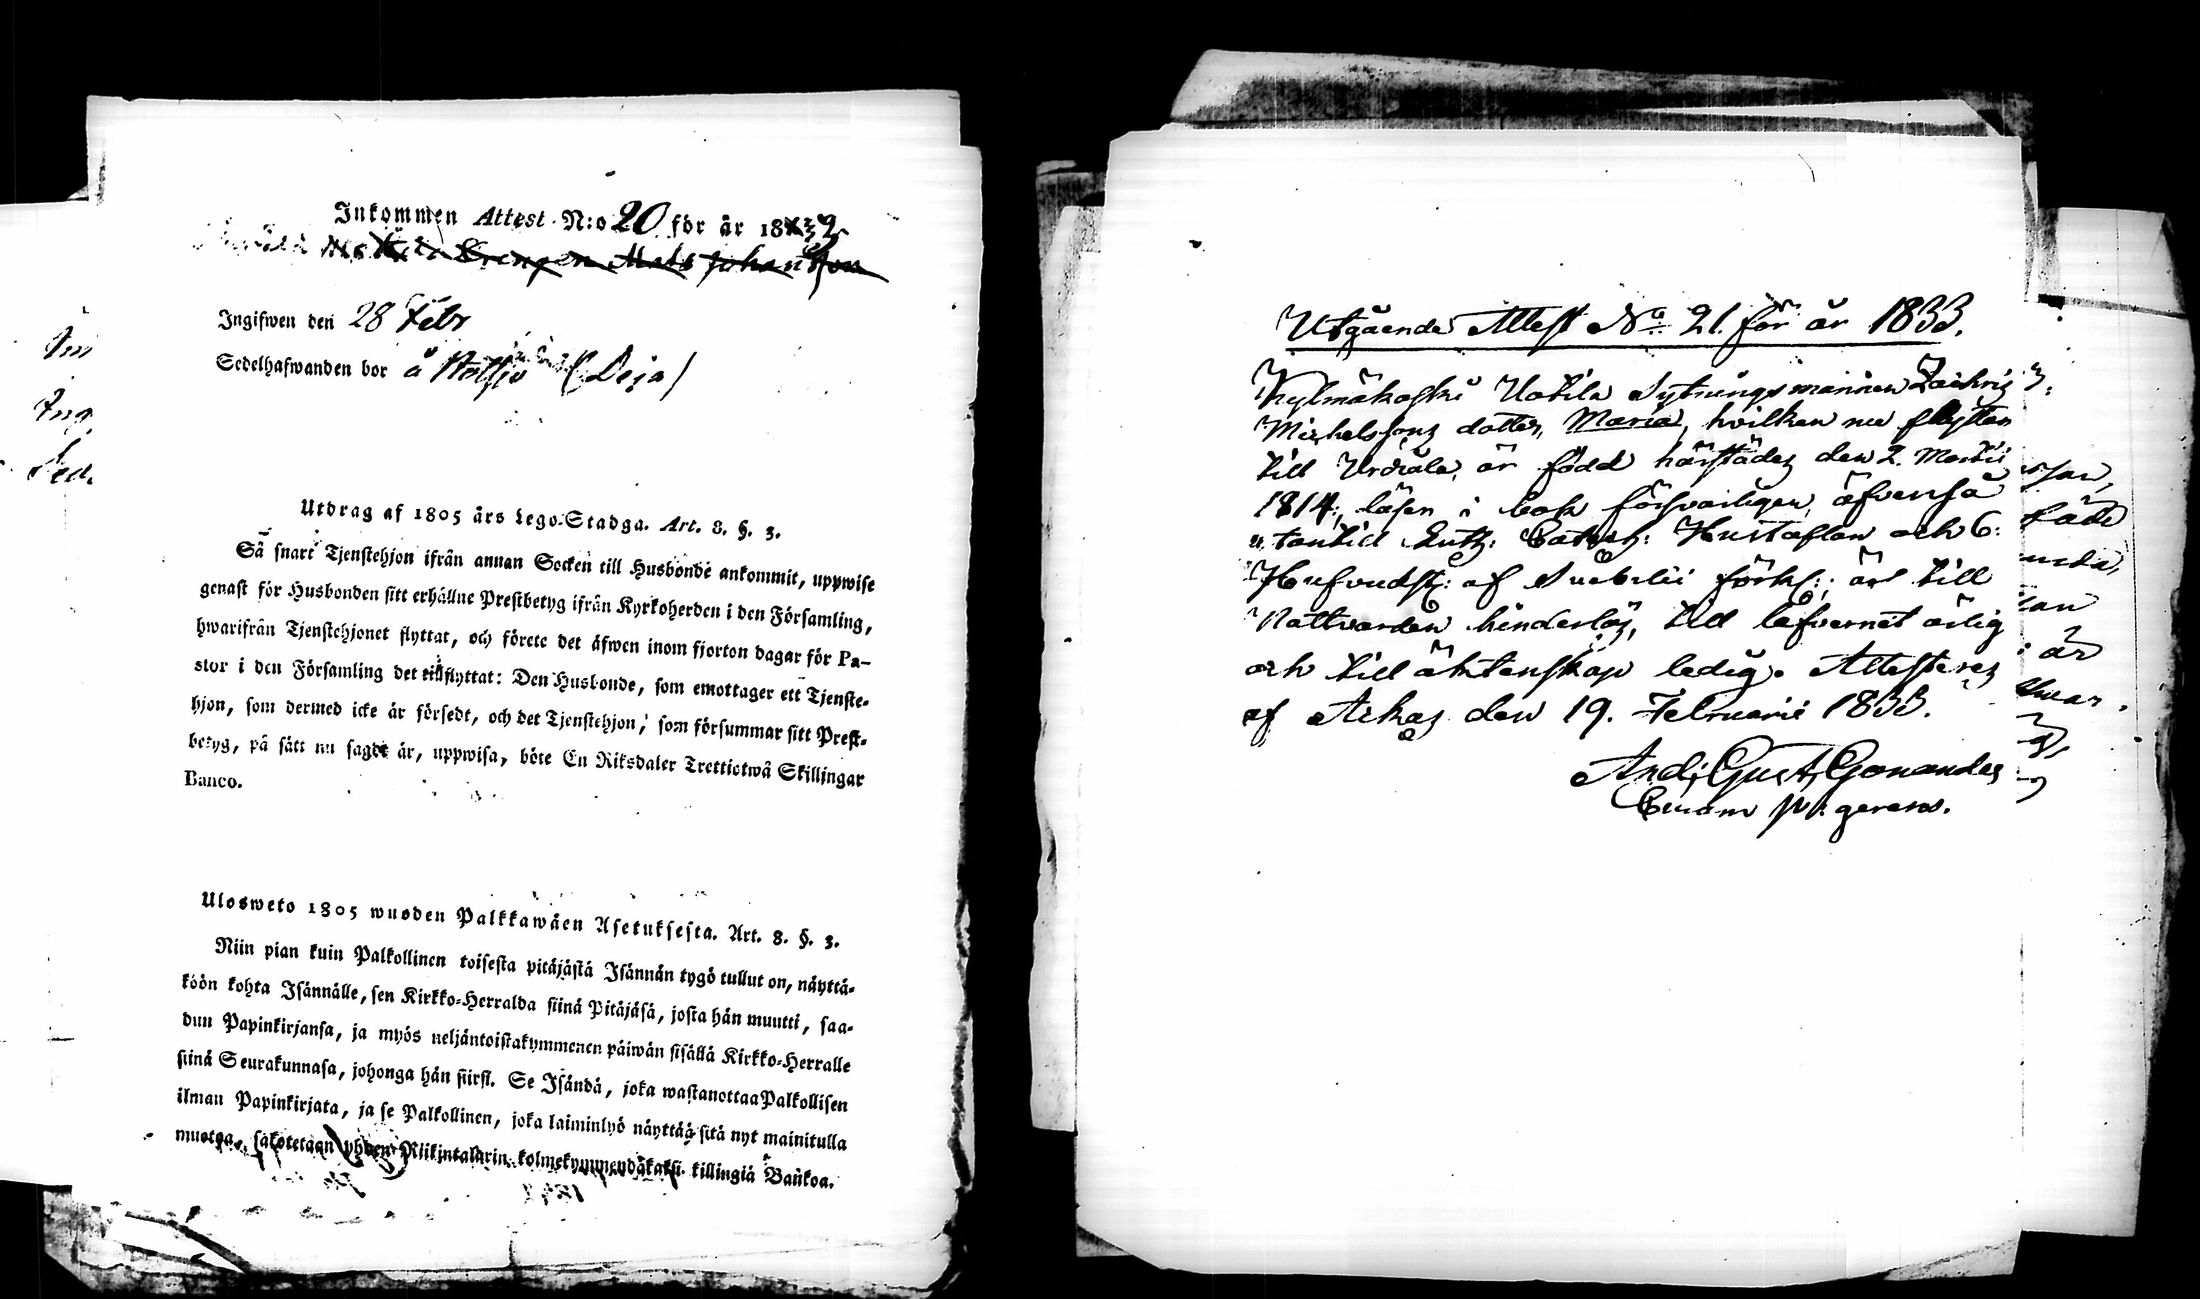 Inkommen Attest N:o 20 för år 1833
Drengen Mats Johansson
Ingifwen den 28 Febr
Sedelhafwanden bor å Nottjo (Deja)
Utdrag af 1805 års Lego-Stadga. Art. 8. §. 3.
Så snart Tjenstehjon ifrån annan Socken till Husbonde ankommit, uppwise
genast för Husbonden sitt erhållne Prestbetyg ifrån Kyrkoherden i den Församling,
hwarifrån Tjenstehjonet flyttat, och förete det äfwen inom fjorton dagar för Pa-
stor i den Församling det tillflyttat: Den Husbonde, som emottager ett Tjenste-
hjon, som dermed icke är försedt, och det Tjenstehjon, som försummar sitt Prest-
betyg, på sätt nu sagdt är, uppwisa, böte En Riksdaler Trettiotwå Skillingar
Banco.
Ulosweto 1805 wuoden Palkkawäen Asetuksesta. Art. 8. §. 3.
Niin pian kuin Palkollinen toisesta pitäjästä Isännän tygö tullut on, näyttä-
köön kohta Isännälle, sen Kirkko-Herralda siinä Pitäjäsä, josta hän muutti, saa-
dun Papinkirjansa, ja myös neljäntoistakymmenen päiwän sisällä Kirkko-Herralle
siinä Seurakunnasa, johonga hän siirsi. Se Isändä, joka wastanottaa Palkollisen
ilman Papinkirjata, ja se Palkollinen, joka laiminlyö näyttää sitä nyt mainitulla
muotoa, sakotetaan yhden Riikintalarin kolmekymmendäkaksi killingiä Bankoa.
Utgående Attest No. 21. för år 1833.
Kylmäkoski Uotila Sytningsmannen Zachris
Michelssons dotter, Maria, hvilken nu flyttar
till Urdiala, är född härstädes den 2. Martii
1814, läser i bok försvarligen, äfvenså
utantill Luth: Catech: Hustaflan och 6:
Hufvudst: af Svebelii förkl:; är till
Nattvarden hinderlös, till lefvernet ärlig
och till äktenskap ledig. Attesteras
af Arkas den 19. Februarii 1833.
And. Gust. Gonander
Curam p. gerens.